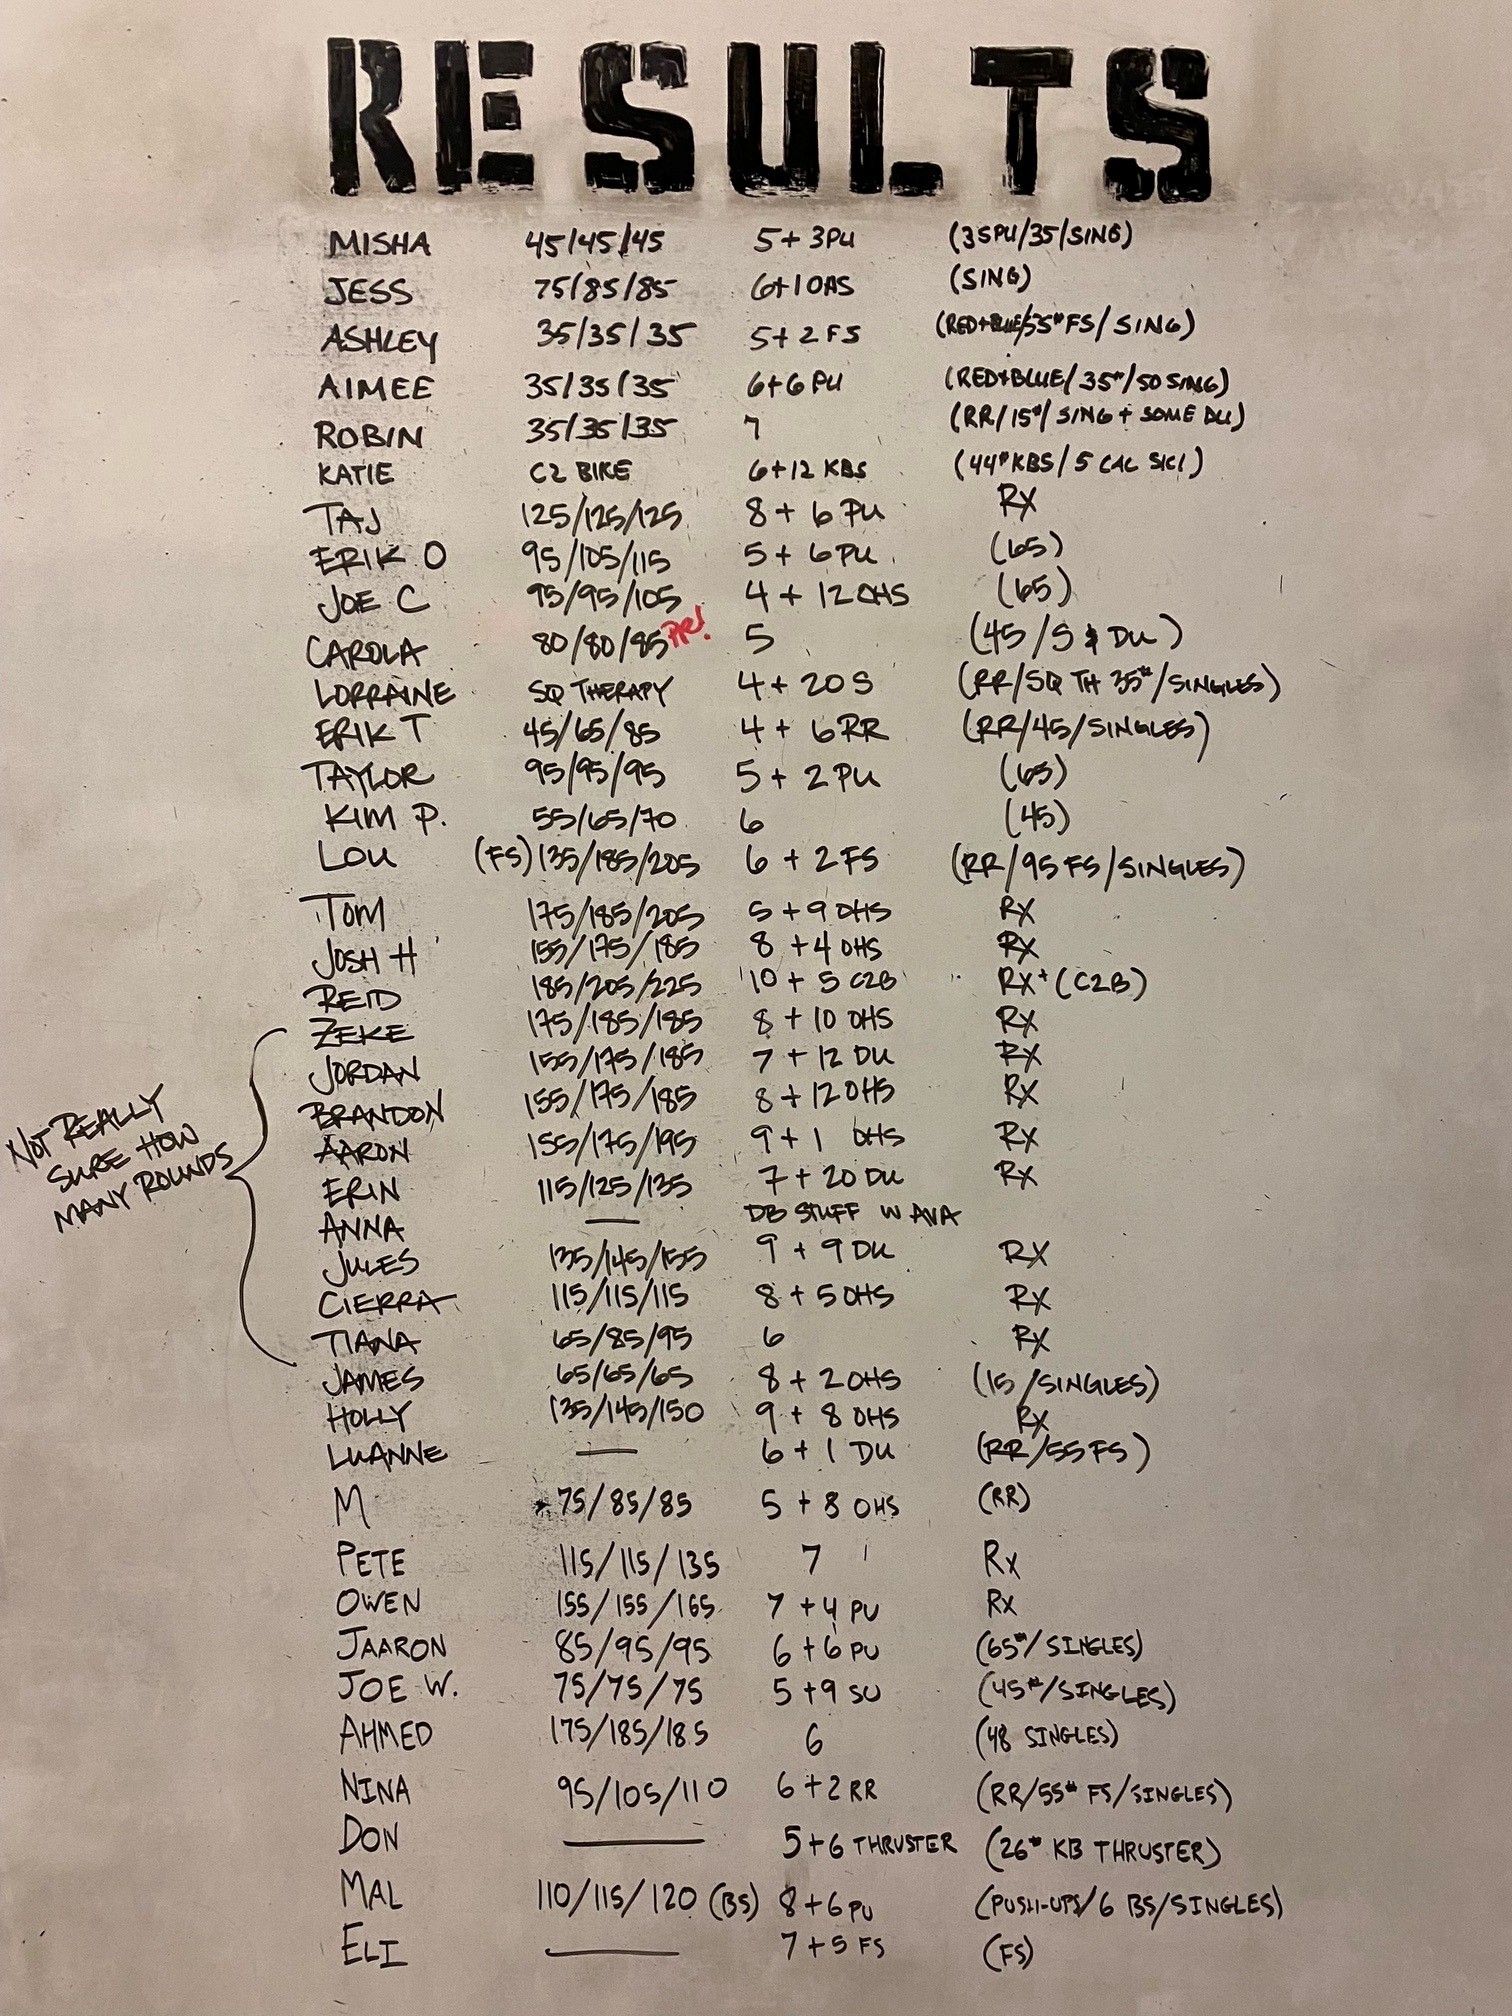 RESULTS
MISHA 45/45/45 5 + 3PU (35PU/35/SING)
JESS 75/85/85 6+1 OAS (SING)
ASHLEY 35/35/35 5+2 FS (RED+BLUE/35# FS/SING)
AIMEE 35/35/35 6+6 PU (RED+BLUE/35#/50 SING)
ROBIN 35/35/35 7 (RR/15#/SING + SOME DU)
KATIE C2 BIKE 6+12 KBS (44# KBS/5 CAL SKI)
TAJ 125/125/125 8 + 6 PU RX
ERIK O 95/105/115 5 + 6PU (65)
JOE C 95/95/105 4 + 12 OHS (65)
CAROLA 80/80/85 PR! 5 (45/S & DU)
LORRAINE SQ THERAPY 4 + 20 S (RR/SQ TH 35#/SINGLES)
ERIK T 45/65/85 4 + 6RR (RR/45/SINGLES)
TAYLOR 95/95/95 5 + 2 PU (65)
KIM P. 55/65/70 6 (45)
LOU (FS) 135/185/205 6 + 2 FS (RR/95 FS/SINGLES)
TOM 175/185/205 5 + 9 OHS RX
JOSH H 155/175/185 8 + 4 OHS RX
REID 185/205/225 10 + 5 C2B RX+ (C2B)
ZEKE 175/185/185 8 + 10 OHS RX
JORDAN 155/175/185 7 + 12 DU RX
BRANDON 155/175/185 8 + 12 OHS RX
AARON 155/175/195 9 + 1 OHS RX
NOT REALLY
SURE HOW
MANY ROUNDS
ERIN 115/125/135 7 + 20 DU RX
ANNA — DB STUFF W AVA
JULES 135/145/155 9 + 9 DU RX
CIERRA 115/115/115 8 + 5 OHS RX
TIANA 65/85/95 6 RX
JAMES 65/65/65 8 + 2 OHS (15/SINGLES)
HOLLY 135/145/150 9 + 8 OHS RX
LUANNE — 6 + 1 DU (RR/55 FS)
M 75/85/85 5 + 8 OHS (RR)
PETE 115/115/135 7 Rx
OWEN 155/155/165 7 +4 PU Rx
JAARON 85/95/95 6 +6 PU (65#/SINGLES)
JOE W. 75/75/75 5 +9 SU (45#/SINGLES)
AHMED 175/185/185 6 (48 SINGLES)
NINA 95/105/110 6 +2 RR (RR/55# FS/SINGLES)
DON — 5+6 THRUSTER (26# KB THRUSTER)
MAL 110/115/120 (BS) 8 +6 PU (PUSH-UPS/6 BS/SINGLES)
ELI — 7 +5 FS (FS)